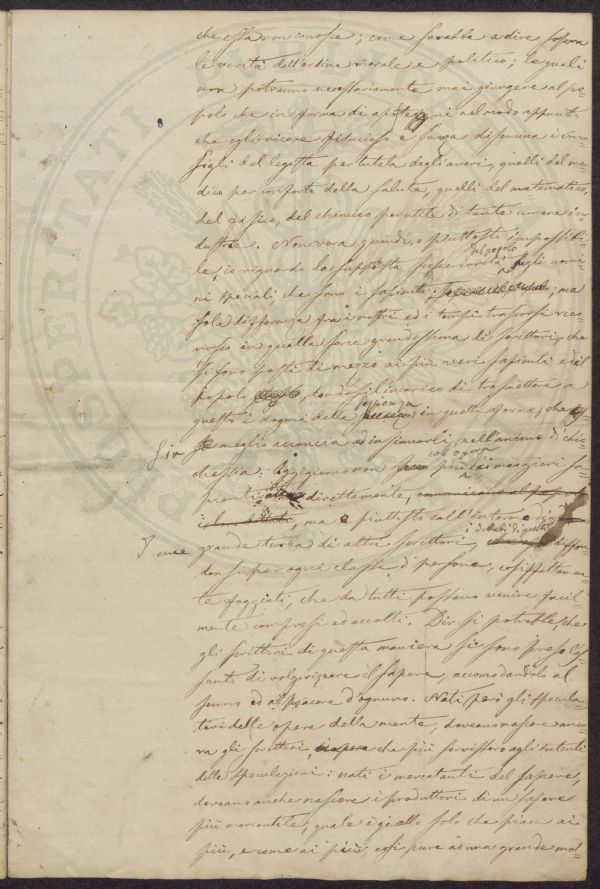 che essa non conosce; come sarebbe a dire sopra
le verità dell'ordine morale e politico; le quali
non potranno necessariamente mai giungere al po=
polo che in forma di apotegmi nel modo appunto
che egli riceve fiducioso e senza disamina i con=
sigli del legista per tutela degli averi, quelli del me=
dico per conforto della salute, quelli del matematico,
del fisico, del chimico per utile di tante umane in=
dustrie. Non vera quindi, o piuttosto impossibi=
le, io riguardo la supposta superiorità degli uomi=
del popolo
ni speciali, che sono i sapienti; ma
sola differenza fra i nostri ed i tempi trascorsi rico=
nosco in quella serie grandissima di scrittori, che
si sono posti di mezzo ai più veri sapienti ed il
popolo, dandosi l'incarico di trasmettere a
sapienza
questo i dogmi della in quella forma, che
sia meglio acconcia ad insinuarli nell'animo di chic=
con opera
chessia. Oggigiorno non più dai maggiori sa=
pienti direttamente,
ma piuttosto coll'interno di
i dettati di questi
grande turba di altri scrittori, diffon=
donsi per ogni classe di persone, cosiffattamen=
te foggiati, che da tutti possano venire facil=
mente compresi ed accolti. Dir si potrebbe, che
gli scrittori di questa maniera si sono preso l'as=
sunto di volgarizzare il sapere, accomodandolo al
senno ed al piacere d'ognuno. Nati però gli specula=
tori delle opere della mente, doveano nascere anco=
ra gli scrittori, che più servissero agli intenti
delle speculazioni: nati i mercatanti del sapere,
doveano anche nascere i produttori di un sapere
più mercantile, quale è quello solo che piace ai
più, e come ai più, così pure ad una grande mol=